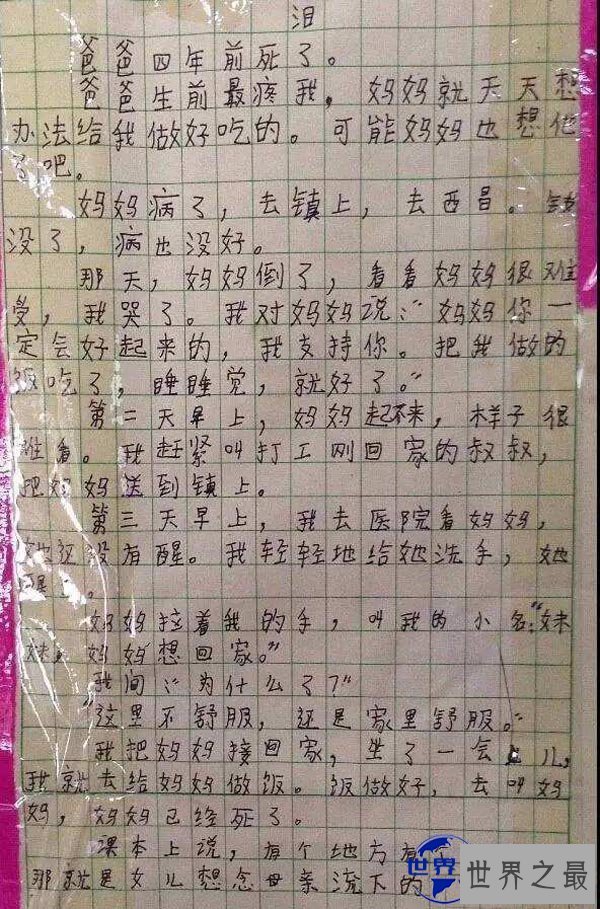 泪
爸爸四年前死了。
爸爸生前最疼我，妈妈就天天想
办法给我做好吃的。可能妈妈也想他
了吧。
妈妈病了，去镇上，去西昌。钱
没了，病也没好。
那天，妈妈倒了，看看妈妈很难
受，我哭了。我对妈妈说：“妈妈你一
定会好起来的，我支持你。把我做的
饭吃了，睡睡觉，就好了。”
第二天早上，妈妈起不来，样子很
难看。我赶紧叫打工刚回家的叔叔，
把妈妈送到镇上。
第三天早上，我去医院看妈妈，
她还没有醒。我轻轻地给她洗手，她
醒了。
妈妈拉着我的手，叫我的小名：“妹
妹，妈妈想回家。”
我问：“为什么了？”
“这里不舒服，还是家里舒服。”
我把妈妈接回家，坐了一会儿，
我就去给妈妈做饭。饭做好，去叫妈
妈，妈妈已经死了。
课本上说，有个地方有
那就是女儿想念母亲流下的
世界 世界之最